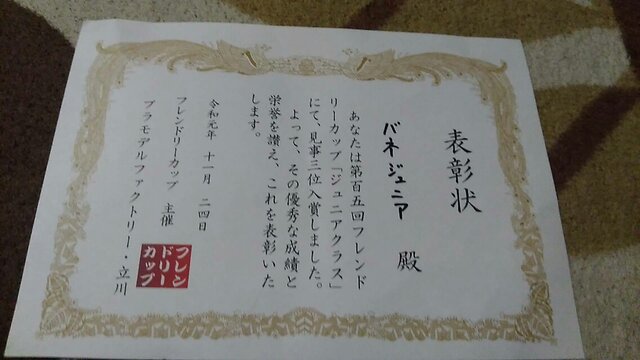 表彰状
バネジュニア 殿
あなたは第百五回フレンド
リーカップ「ジュニアクラス」
にて、見事三位入賞しました。
よって、その優秀な成績と
栄誉を讃え、これを表彰いた
します。
令和元年 十一月 二四日
フレンドリーカップ 主催
プラモデルファクトリー・立川
フレン
ドリー
カップ